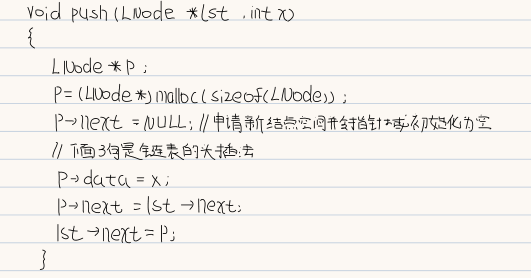 void push(LNode *lst, int x)
{
LNode *p;
p=(LNode*)malloc(sizeof(LNode));
p→next = NULL; //申请新结点空间并封指针域初始化为空
//下面3句是链表的头插法
p→data = x;
p→next = lst→next;
lst→next = p;
}